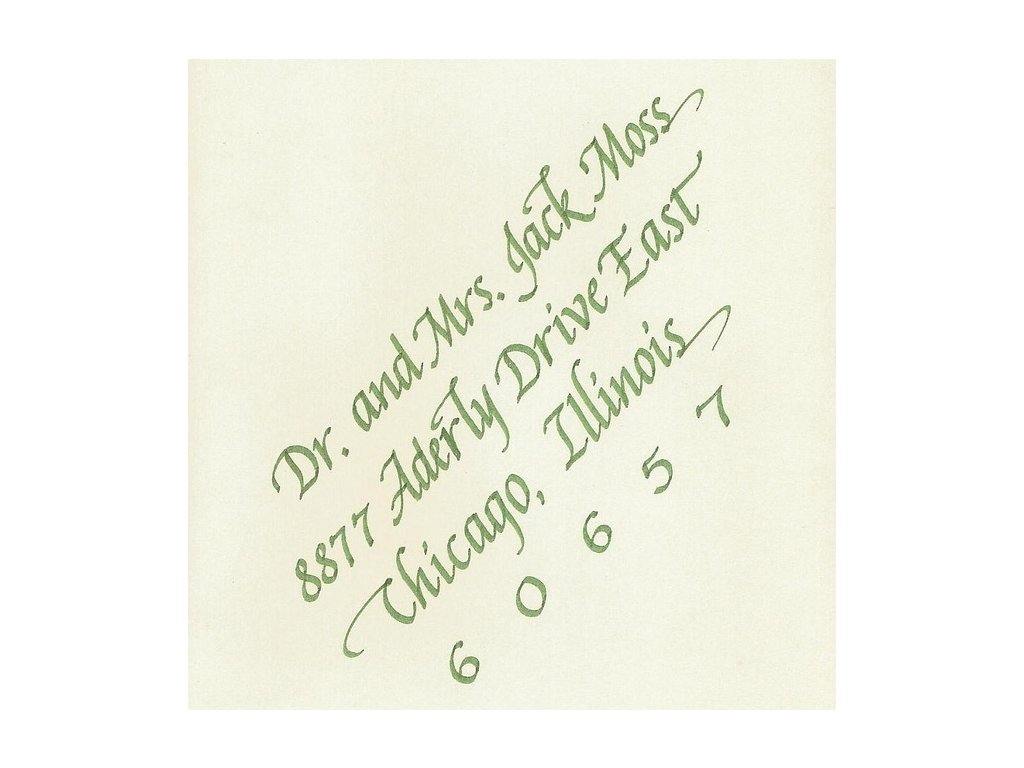 Dr. and Mrs. Jack Moss
8877 Aderly Drive East
Chicago, Illinois
6 0 6 5 7